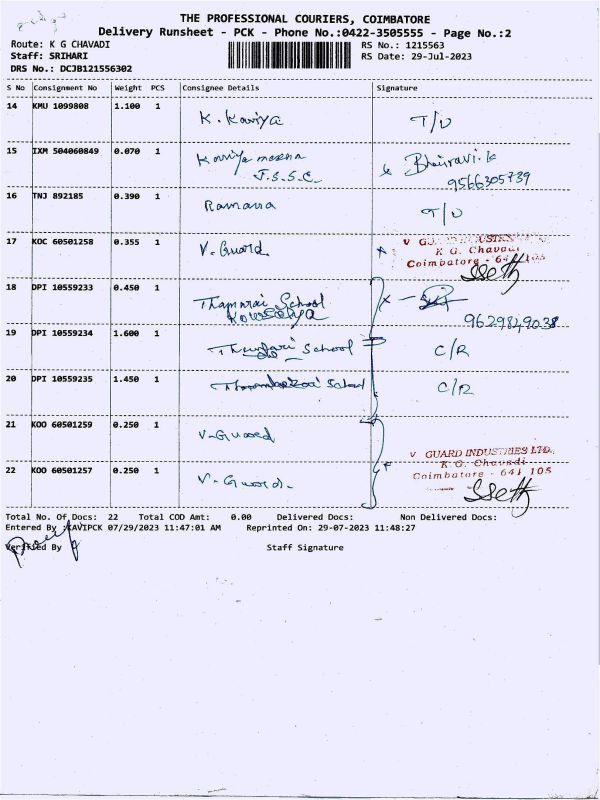 THE PROFESSIONAL COURIERS, COIMBATORE
Delivery Runsheet - PCK - Phone No.:0422-3505555 - Page No.:2
Route: K G CHAVADI RS No.: 1215563
Staff: SRIHARI RS Date: 29-Jul-2023
DRS No.: DCJB121556302
S No Consignment No Weight PCS Consignee Details Signature
14 KMU 1099808 1.100 1 K. Kaviya T/U
15 IXM 504060849 0.070 1 J.S.S.C. Bhairavi.k
9566305739
16 TNJ 892185 0.390 1 Ramana T/U
17 KOC 60501258 0.355 1 V-Guard
K G. Chavadi
Coimbatore - 641 105
18 DPI 10559233 0.450 1 School
9629849038
19 DPI 10559234 1.600 1 School C/R
20 DPI 10559235 1.450 1 School C/R
21 KOO 60501259 0.250 1 V-Guard
V GUARD INDUSTRIES LTD.
K.G. Chavadi
22 KOO 60501257 0.250 1 V-Guard. Coimbatore - 641 105
Total No. Of Docs: 22 Total COD Amt: 0.00 Delivered Docs: Non Delivered Docs:
Entered By :KAVIPCK 07/29/2023 11:47:01 AM Reprinted On: 29-07-2023 11:48:27
Verified By Staff Signature